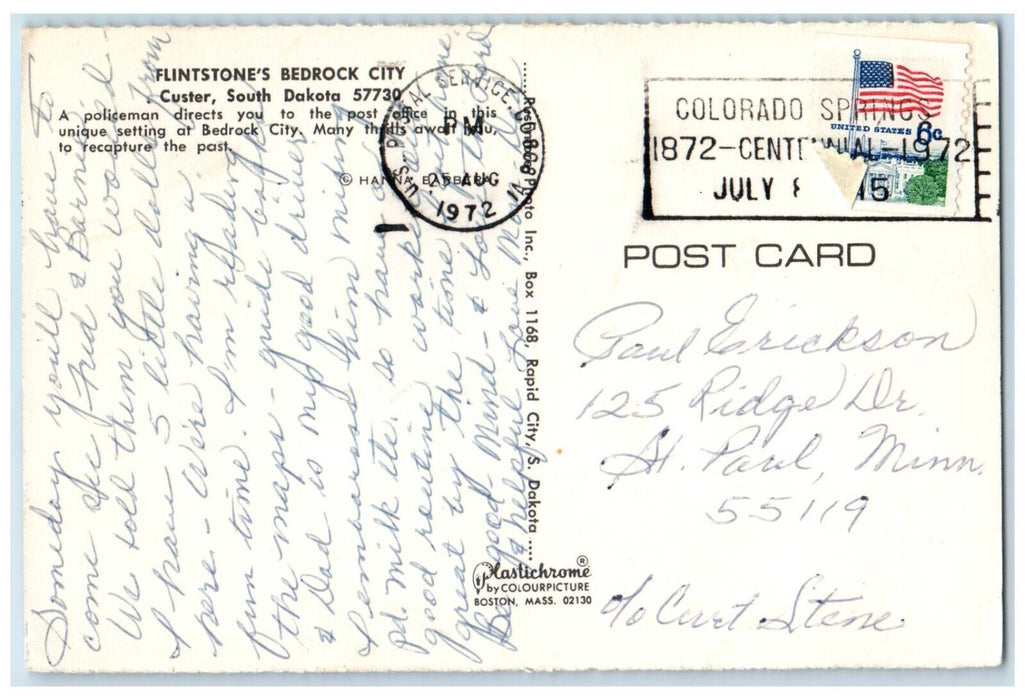 FLINTSTONE'S BEDROCK CITY
Custer, South Dakota 57730
A policeman directs you to the post office in this
unique setting at Bedrock City. Many thrills await you,
to recapture the past.
© HANNA BARBERA
U.S. POSTAL SERVICE
PM
25 AUG
1972
COLORADO SPRINGS
1872-CENTENNIAL-1972
JULY 15
UNITED STATES 6c
POST CARD
Paul Erickson
125 Ridge Dr.
St. Paul, Minn.
55119
c/o Curt Stene
Photo Inc., Box 1168, Rapid City, S. Dakota
Plastichrome®
by COLOURPICTURE
BOSTON, MASS. 02130
Someday you'll have to
come see Fred & Barnie
We told them you would
5 little dolls from
here - We're having a
fun time. I'm reading
the maps - guide
& Dad is my good driver
I embarass him mixing
pd. milk etc. so have a
good routine worked
great by the time
Be good, Mind - &
helpful Love